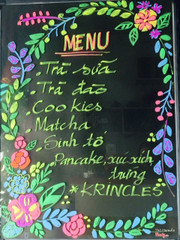 MENU
. Trà sữa
. Trà đào
. Cookies
. Matcha
@ Sinh tố
. Pancake, xúc xích
trứng
* KRINCLES